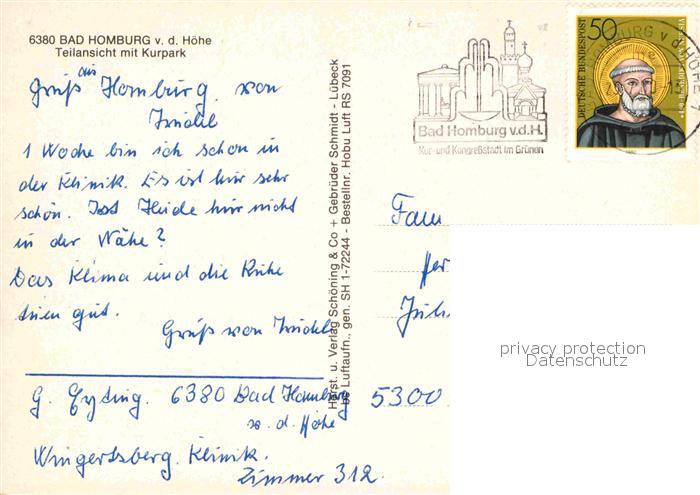 6380 BAD HOMBURG v. d. Höhe
Teilansicht mit Kurpark
Gruß aus Homburg von
Trudel
1 Woche bin ich schon in
der Klinik. Es ist hier sehr
schön. Ist Heide hier nicht
in der Nähe?
Das Klima und die Ruhe
tuen gut.
Gruß von Trudel
G. Eyting. 6380 Bad Homburg
v. d. Höhe
Wingertsberg. Klinik.
Zimmer 312.
Horst. u. Verlag Schöning & Co + Gebrüder Schmidt - Lübeck
Luftaufn., gen. SH 1-72244 - Bestellnr. Hobu Luft RS 7091
Bad Homburg v.d.H.
Kur-und Kongreßstadt im Grünen
50
DEUTSCHE BUNDESPOST
Fam
Her
5300
privacy protection
Datenschutz